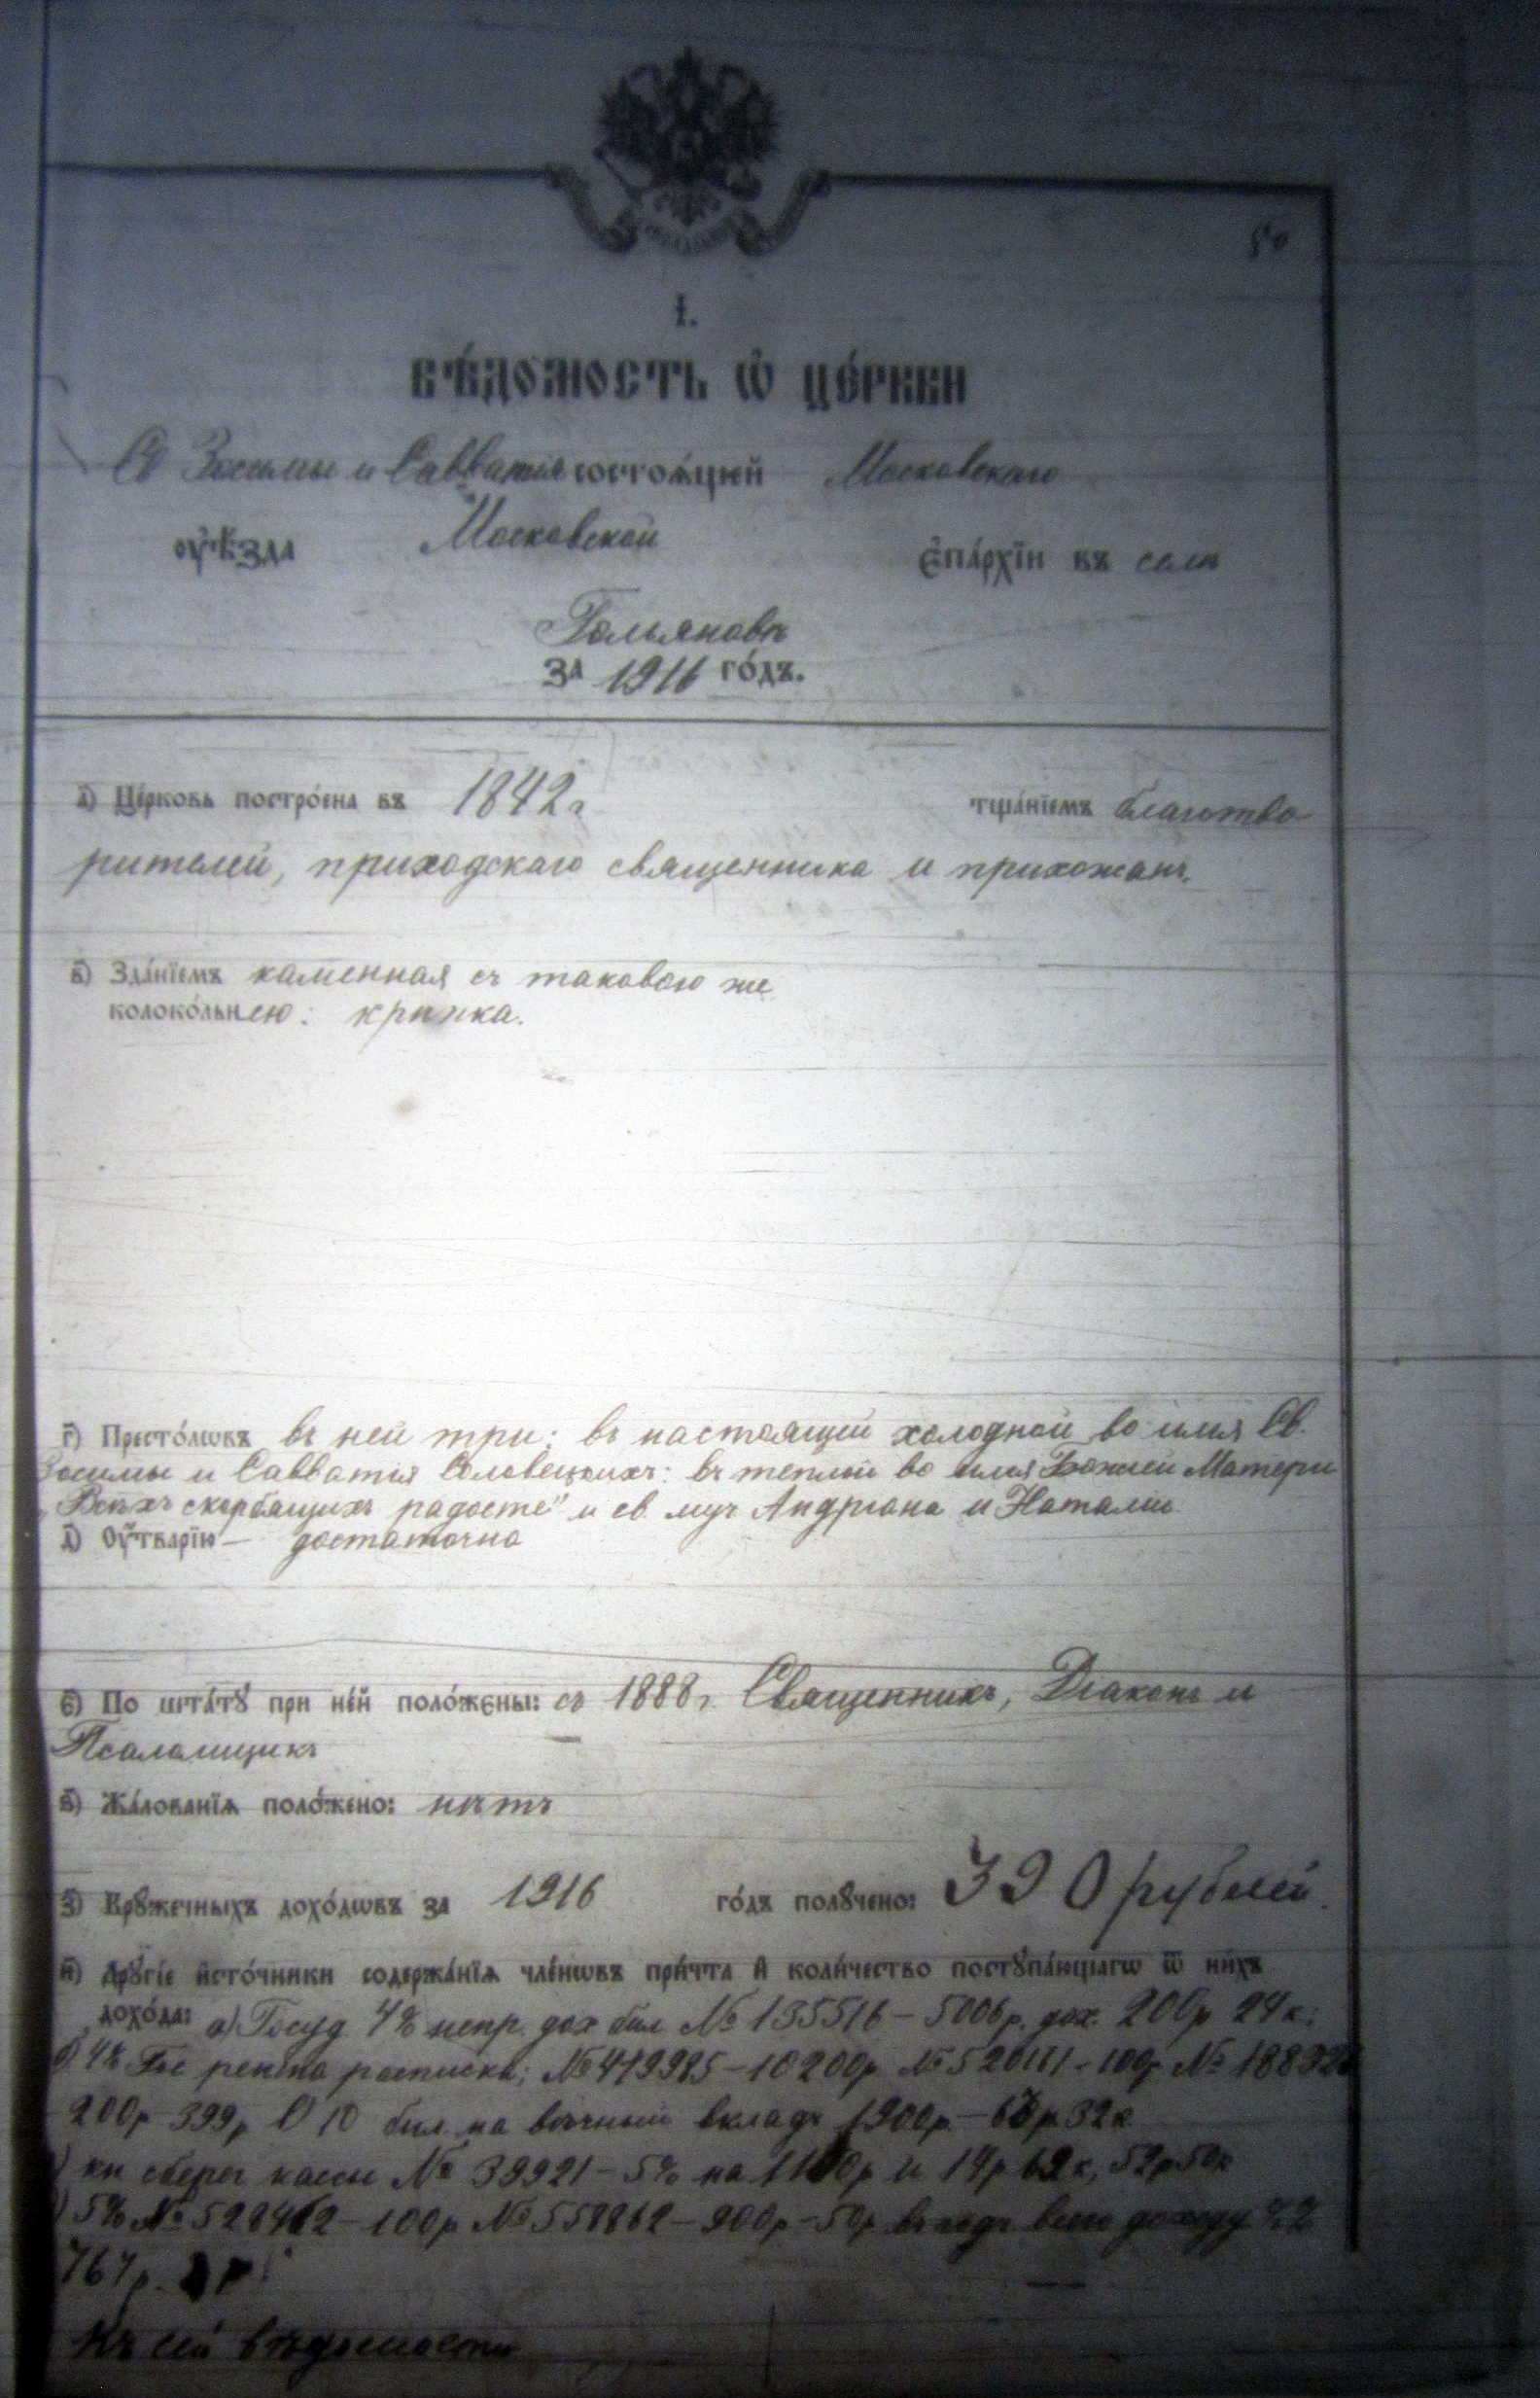 50
І.
ВѢ́ДОМОСТЬ Ѡ҆ ЦЕ́РКВИ
Св Зосимы и Савватія состоѧ́щей Московскаго
ᲂу҆ѣ́зда Московской є҆па́рхїи въ селѣ
Гольяновѣ
за 1916 го́дъ.
а҃) Це́рковь постро́ена въ 1842 г тща́нїемъ благотво-
рителей, приходскаго священника и прихожанъ.
в҃) Зда́нїемъ каменная съ таковою же
колоко́льнею: крѣпка.
г҃) Престо́лѡвъ въ ней три: въ настоящей холодной во имя Св.
Зосимы и Савватія Соловецкихъ: въ теплой во имя Божіей Матери
„Всѣхъ скорбящихъ радосте" и св. муч Андріана и Наталіи
д҃) Оу҆́тварїю — достаточно
є҃) По шта́тꙋ при не́й поло́жены: съ 1888 г. Священникъ, Діаконъ и
Псаломщикъ
ѕ҃) Жа́лованїѧ поло́жено: нѣтъ
з҃) Крꙋ́жечныхъ дохо́дѡвъ за 1916 го́дъ полꙋ́чено: 390 рублей.
и҃) Дрꙋгі́е и҆сто́чники содержа́нїѧ чле́нѡвъ при́чта и҆ коли́чество постꙋпа́ющагѡ ѿ ни́хъ
дохо́да: а) Госуд 4% непр. дох бил № 135516 – 5006 р. дох. 200 р 24 к;
б) 4% Гос рента росписка; № 419985 – 10200 р № 520161 – 100 р №
200 р – 399 р бил. на вѣчный вкладъ 1900 р. – 32 к
кн сберег кассы № 39921 – 5% на и 14 р 62 к, 52 р 50 к
5% № – 100 р № 558862 – 900 р – 50 р въ годъ всего доходу
767 р.
Къ сей вѣдомости